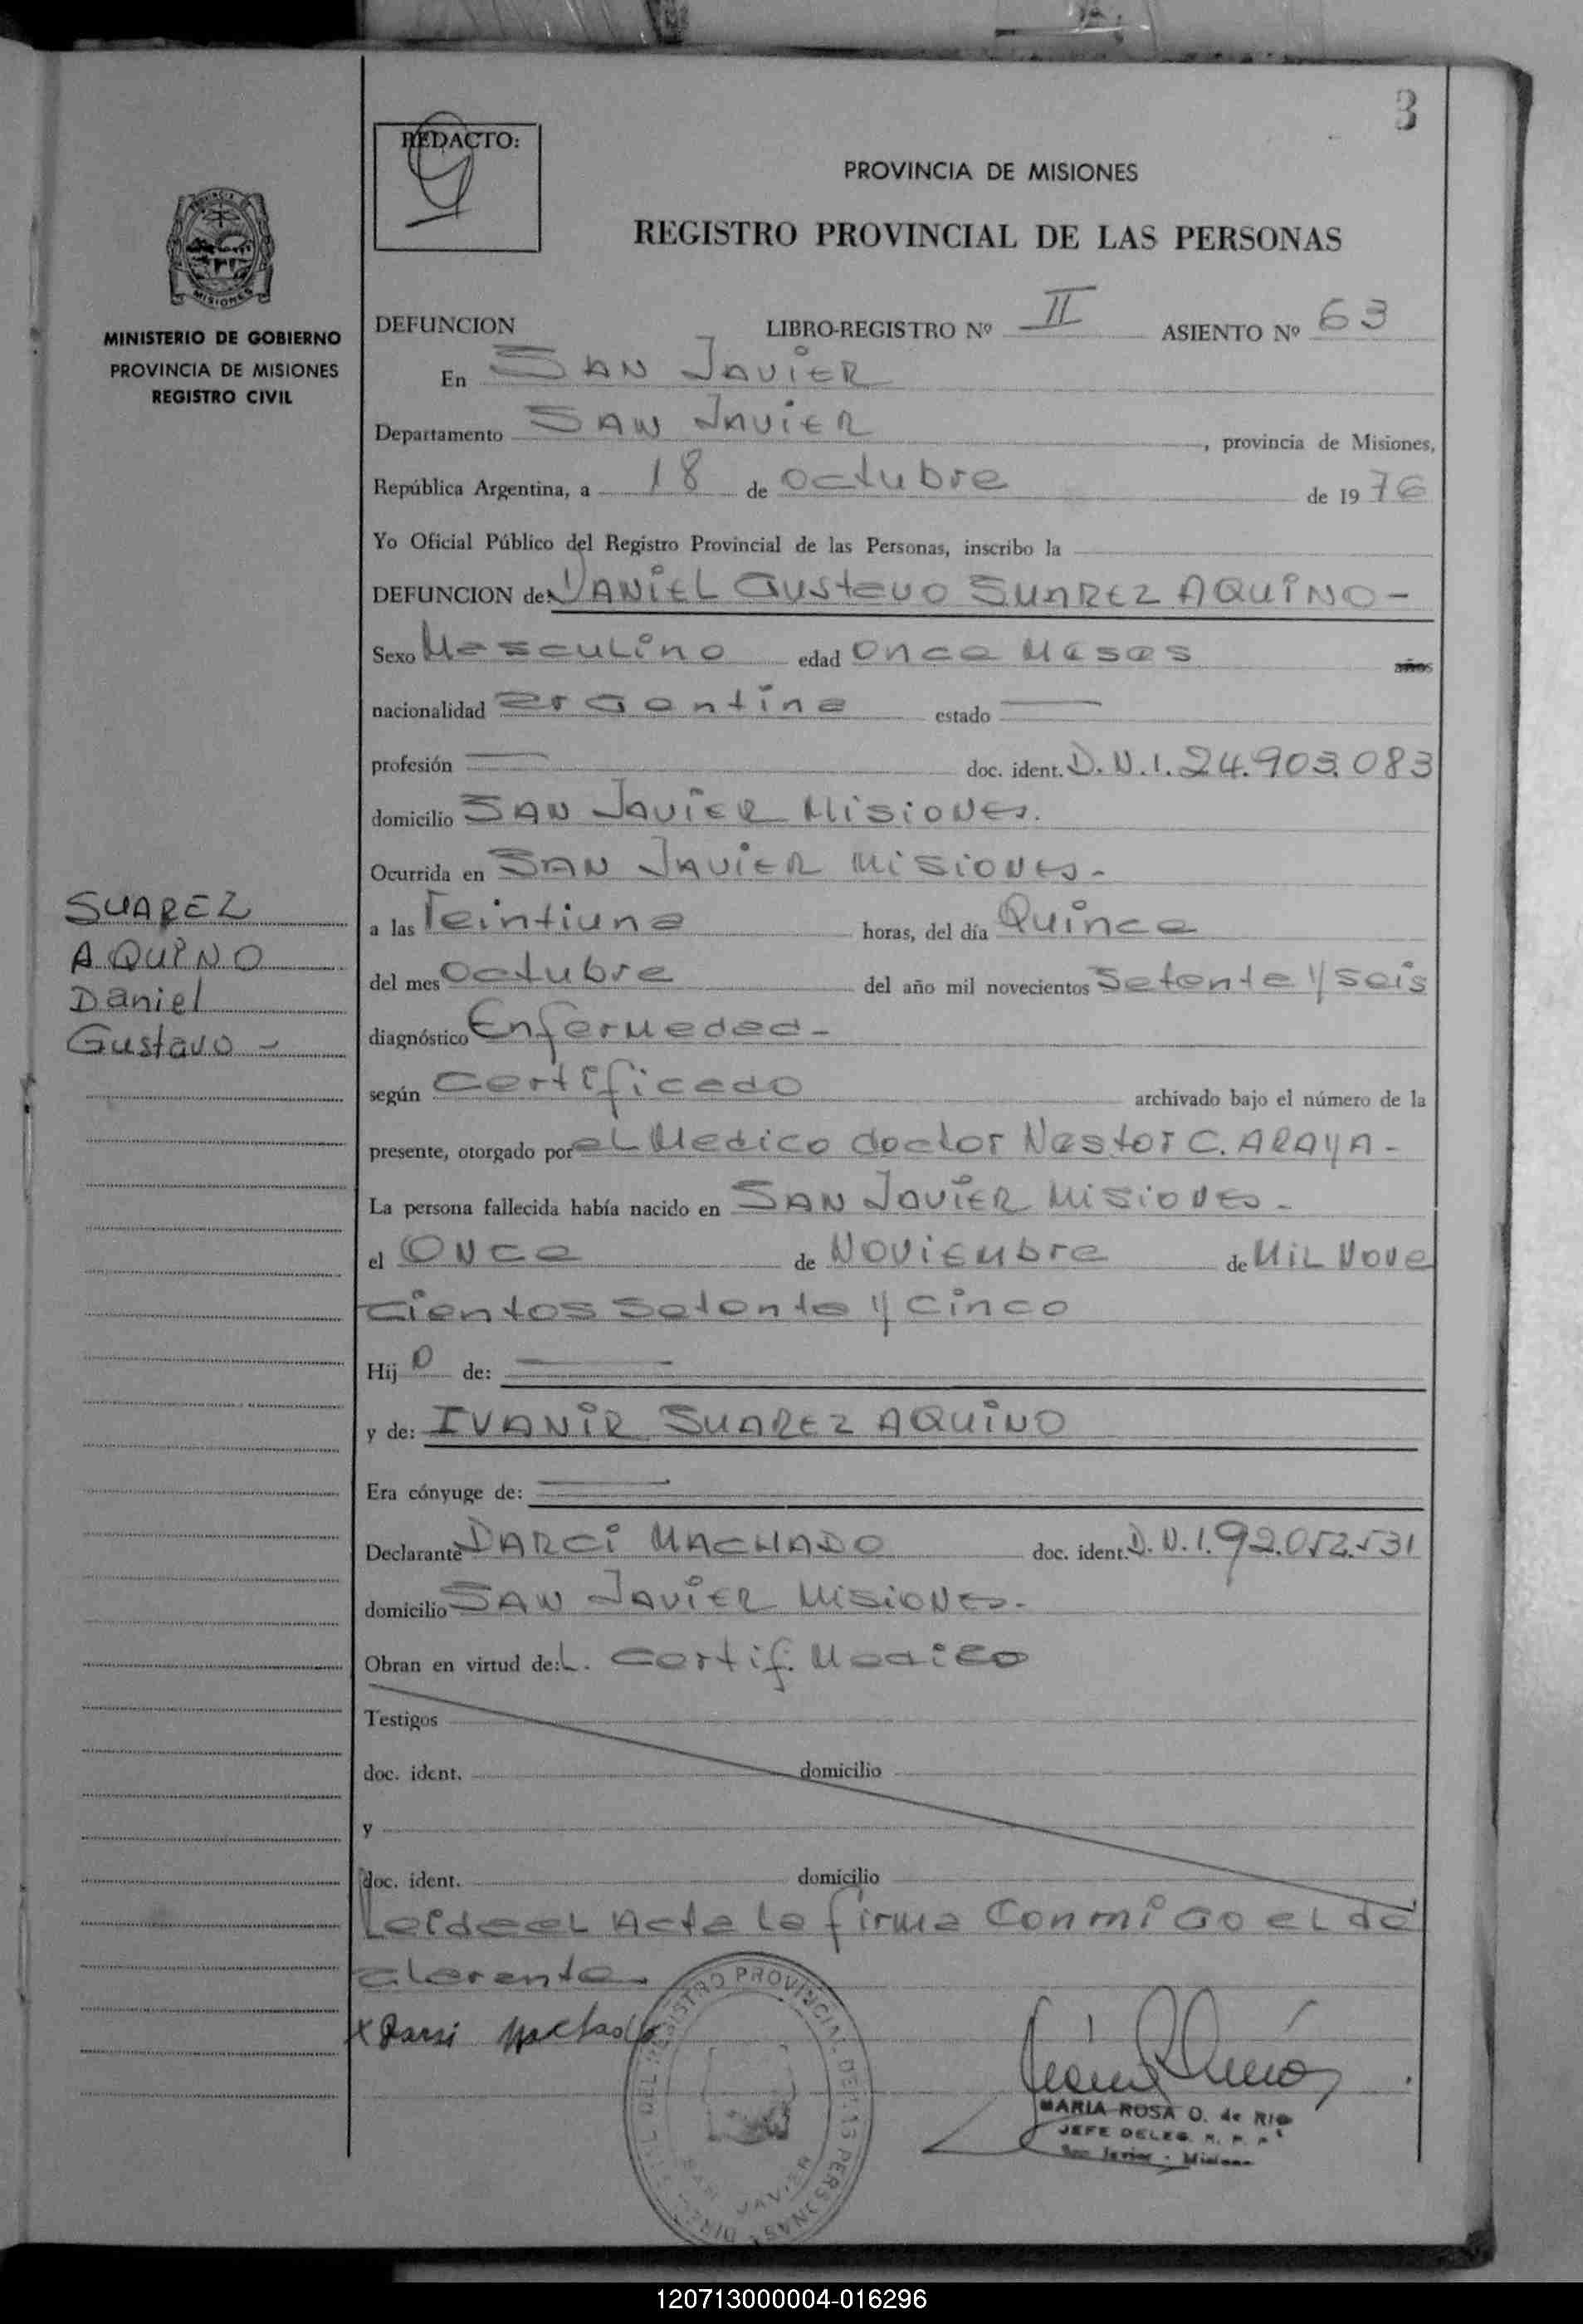 3
REDACTO:
PROVINCIA DE MISIONES
REGISTRO PROVINCIAL DE LAS PERSONAS
MISIONES
MINISTERIO DE GOBIERNO
PROVINCIA DE MISIONES
REGISTRO CIVIL
DEFUNCION LIBRO-REGISTRO Nº II ASIENTO Nº 63
En SAN JAVIER
Departamento SAN JAVIER, provincia de Misiones,
República Argentina, a 18 de octubre de 1976
Yo Oficial Público del Registro Provincial de las Personas, inscribo la
DEFUNCION de: DANIEL Gustavo SUAREZ AQUINO-
Sexo Masculino edad Once Meses años
nacionalidad argentina estado
profesión doc. ident. D.N.I. 24.903.083
domicilio SAN JAVIER MISIONES.
Ocurrida en SAN JAVIER MISIONES-
SUAREZ
AQUINO
Daniel
Gustavo-
a las Veintiuna horas, del día Quince
del mes Octubre del año mil novecientos Setenta y seis
diagnóstico Enfermedad-
según certificado archivado bajo el número de la
presente, otorgado por el Medico doctor Nestor C. ARAYA-
La persona fallecida había nacido en SAN JAVIER MISIONES-
el ONCE de NOVIEMbre de MIL NOVE
cientos setenta y cinco
Hijo de:
y de: IVANIR SUAREZ AQUINO
Era cónyuge de:
Declarante DARCI MACHADO doc. ident. D.N.I. 92.052.531
domicilio SAN JAVIER MISIONES.
Obran en virtud de: L. Certif. Medico
Testigos
doc. ident. domicilio
y
doc. ident. domicilio
Leida el Acta la firma conmigo el de
clarante.
x Darsi Machado
REGISTRO PROVINCIAL DE LAS PERSONAS
SAN JAVIER
MARIA ROSA O. de RIO
JEFE DELEG. R. P. P.
San Javier - Misiones
120713000004-016296